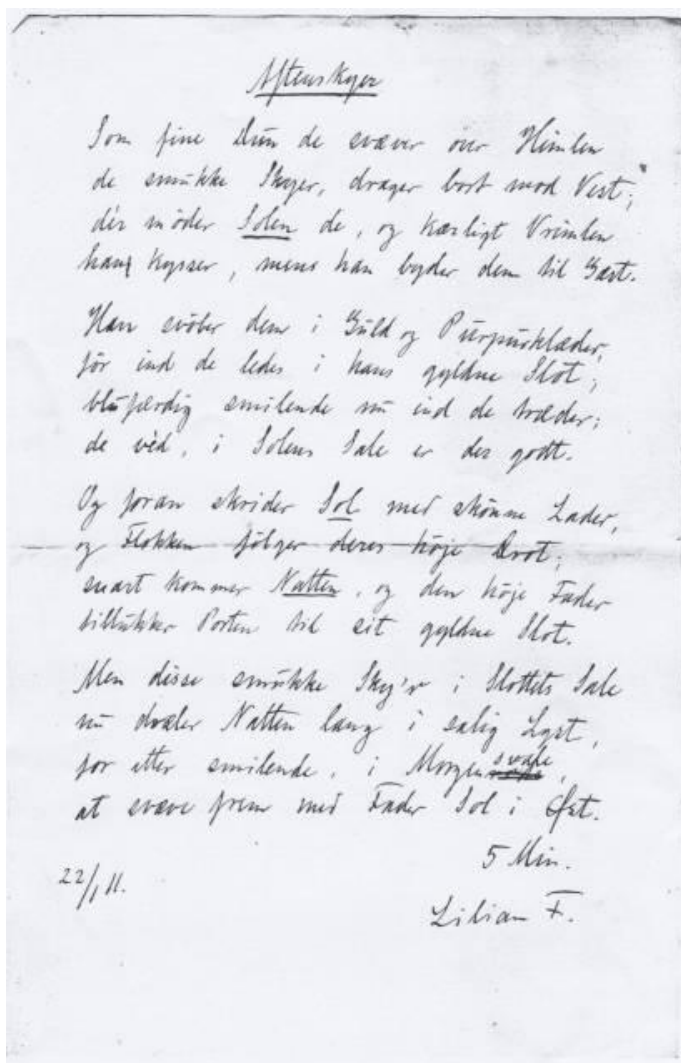 Aftenskyer
Som fine Dun de svæver over Himlen
de smukke Skyer, drager bort mod Vest;
dér möder Solen de, og kærligt Vrimlen
han kysser, mens han byder dem til Gæst.
Han svöber dem i Guld og Purpurklæder,
för ind de ledes i hans gyldne Slot,
blufærdig smilende nu ind de træder;
de véd, i Solens Sale er der godt.
Og foran skrider Sol med skönne Lader,
og Flokken fölger deres höje Drot;
snart kommer Natten, og den höje Fader
tillukker Porten til sit gyldne Slot.
Men disse smukke Sky'r i Slottets Sale
nu dvæler Natten lang i salig Lyst,
for atter smilende, i Morgensvale,
at svæve frem med Fader Sol i Øst.
5 Min.
22/1 11.
Lilian F.